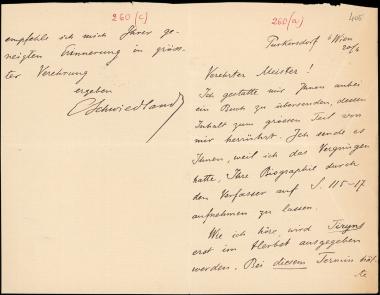 260 (c)
empfehle ich mich Ihrer ge-
neigten Erinnerung in gröss-
ter Verehrung
ergeben
CSchwiedland
260(a)
405
Purkersdorf b/Wien
20/6
Verehrter Meister!
Ich gestatte mir Ihnen anbei
ein Buch zu übersenden, dessen
Inhalt zum grossen Teil von
mir herrührt. Ich sende es
Ihnen, weil ich das Vergnügen
hatte, Ihre Biographie durch
den Verfasser auf S. 115-17
aufnehmen zu lassen.
Wie ich höre, wird Tiryns
erst im Herbst ausgegeben
werden. Bei diesem Termin hät-
te